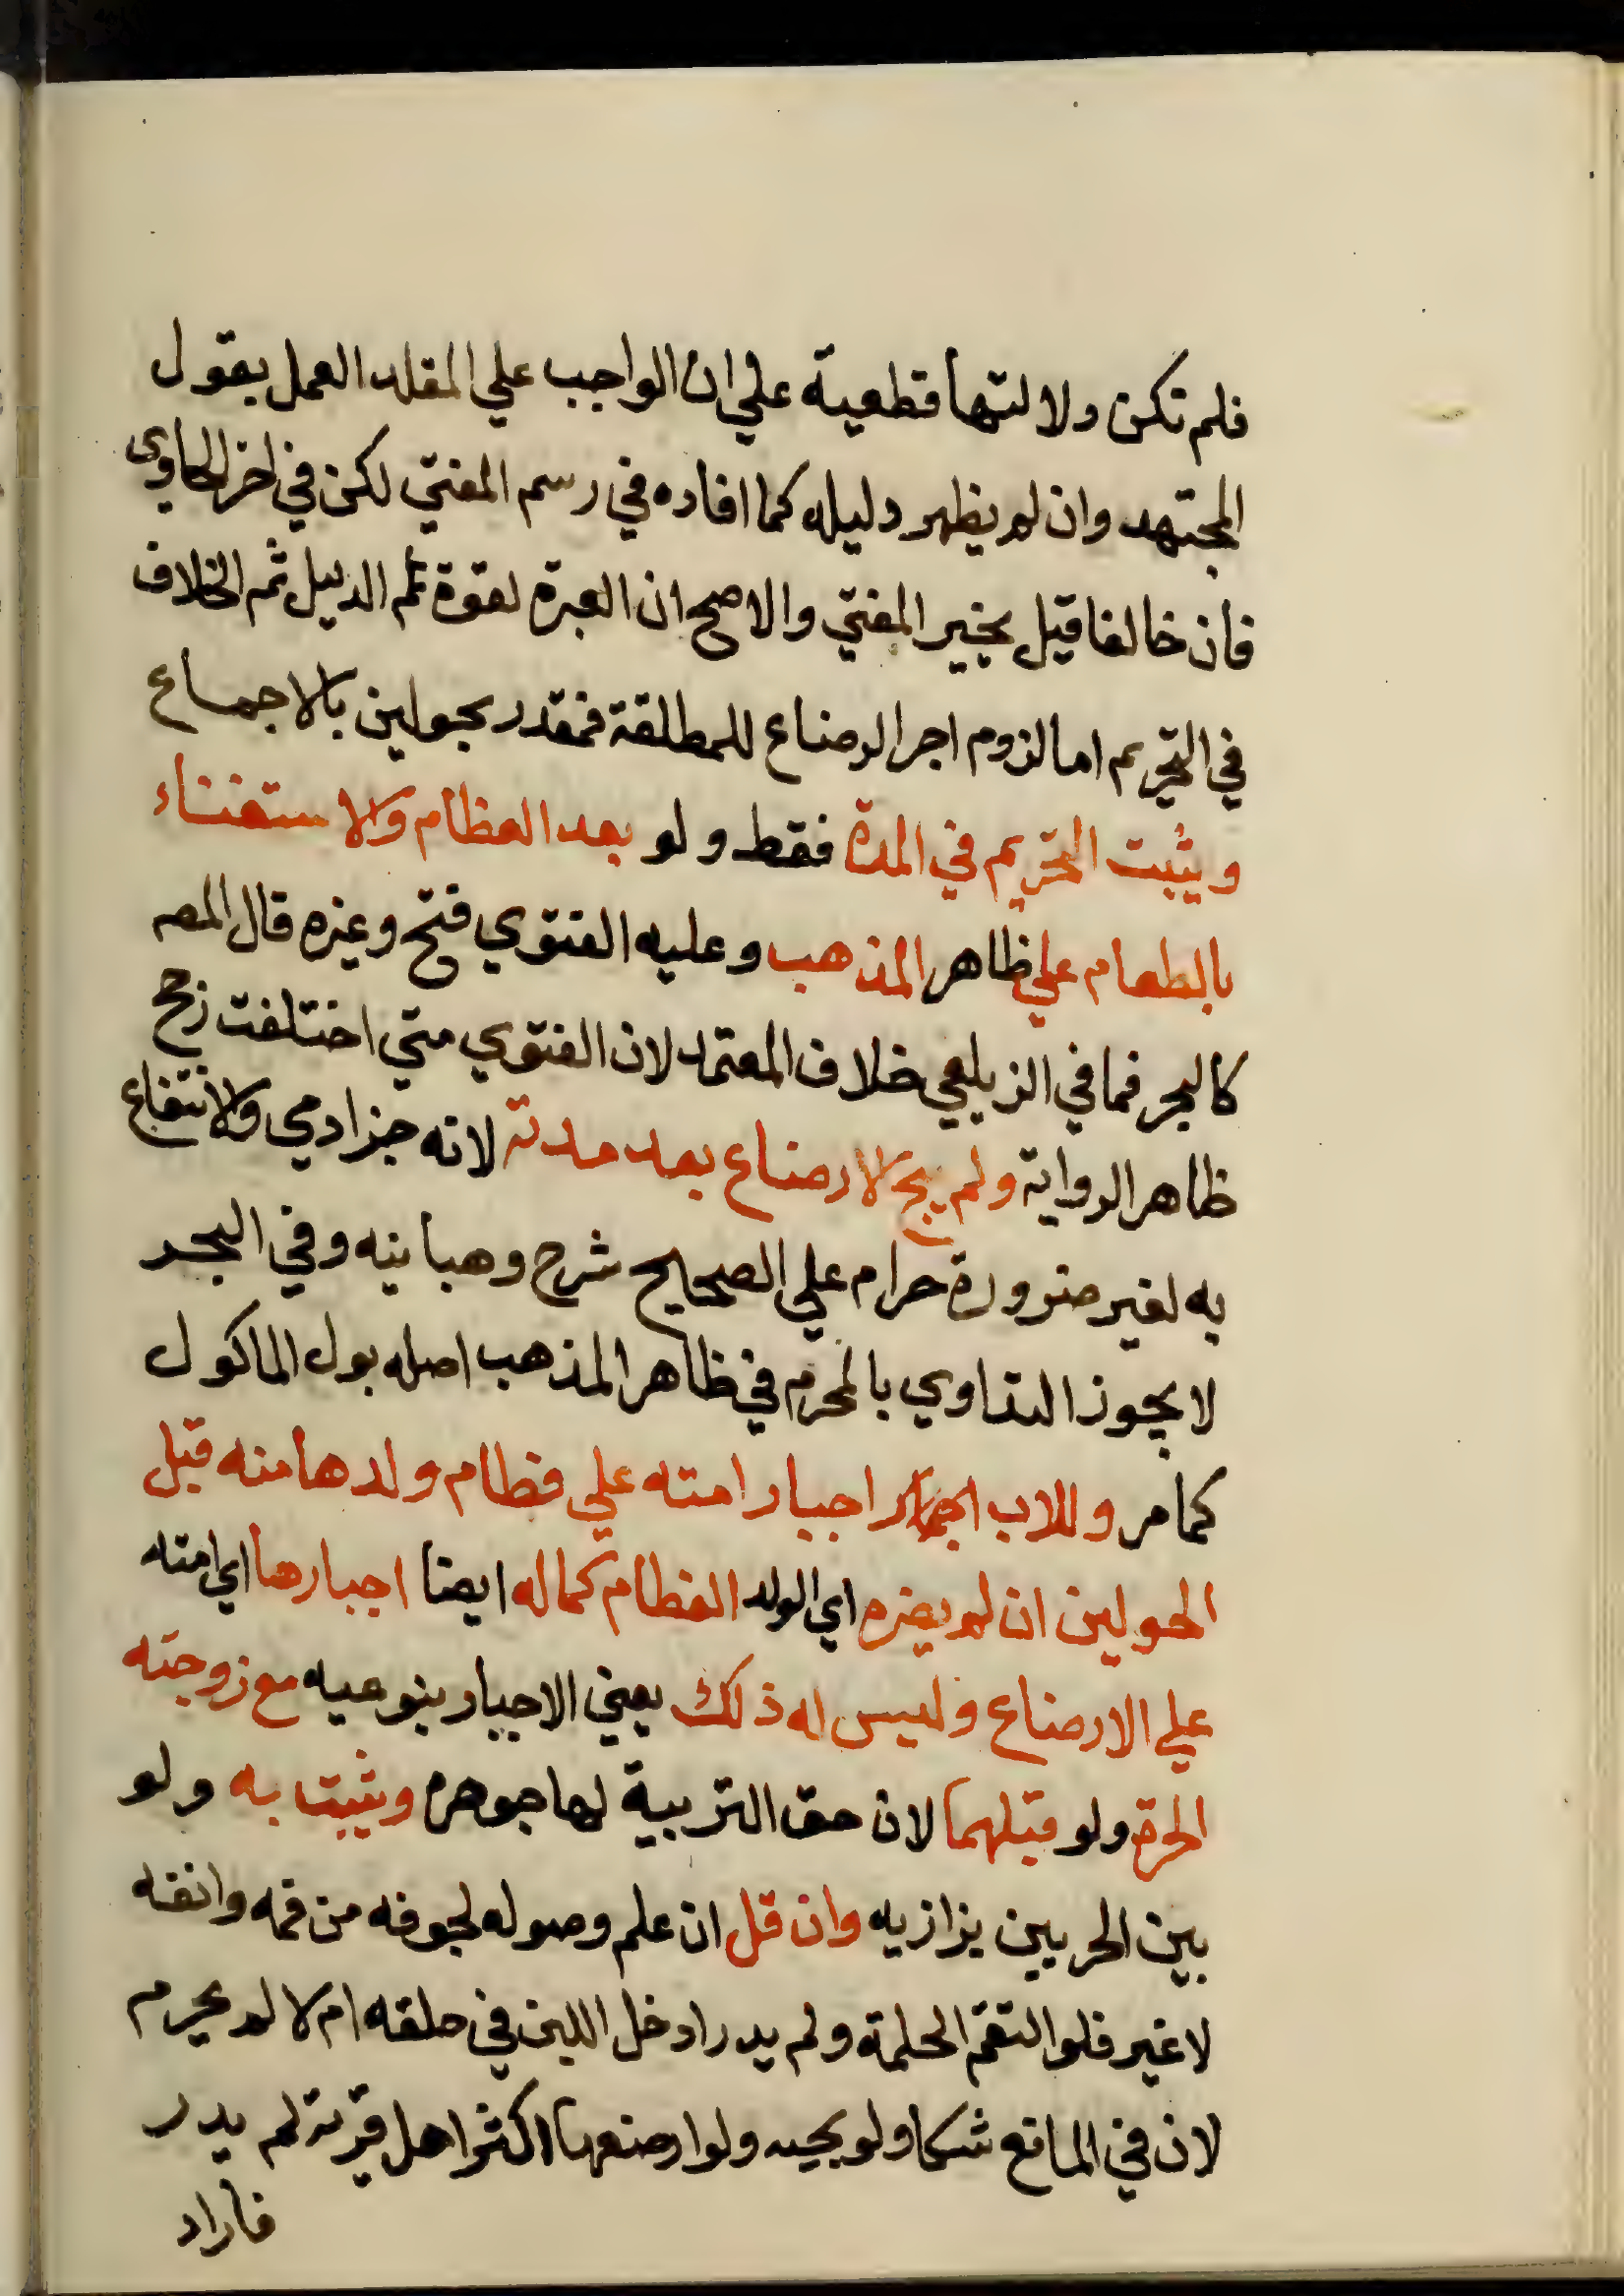 فلم تكن دلالتها قطعية علي ان الواجب علي المقلد العمل بقول
المجتهد وان لم يظهر دليله كما افاده في رسم المفتي لكن في اخر الحاوى
فان خالفا قيل يخير المفتي والاصح ان العبرة لقوة الدليل ثم الخلاف
في التحريم اما لزوم اجر الرضاع للمطلقة فمقدر بحولين بالاجماع
ويثبت التحريم في المدة فقط ولو بعد الفظام والاستغناء
بالطعام علي ظاهر المذهب وعليه الفتوي فتح وغيره قال المص
كالبحر فما في الزيلعي خلاف المعتمد لان الفتوي متي اختلفت رجح
ظاهر الرواية ولم يبح الارضاع بعد مدته لانه جزادمي والانتفاع
به لغير ضرورة حرام علي الصحيح شرح وهبانيه وفي البحر
لا يجوز التداوي بالمحرم في ظاهر المذهب اصله بول الماكول
كما مر وللاب اجبار امته علي فطام ولدها منه قبل
الحولين ان لم يضره اي الولد الفطام كماله ايضا اجبارها اي امته
علي الارضاع وليس له ذلك يعني الاجبار بنوعيه مع زوجته
الحرة ولو قبلهما لان حق التربية لها جوهره ويثبت به ولو
بين الحربيين بزازيه وان قل ان علم وصوله لجوفه من فمه وانفه
لا غير فلو التقم الحلمة ولم يدر ادخل اللبن في حلقه ام لا لم يحرم
لان في المانع شكا ولوبحيه ولو ارضعها اكثر اهل قرية لم يدر
فاراد